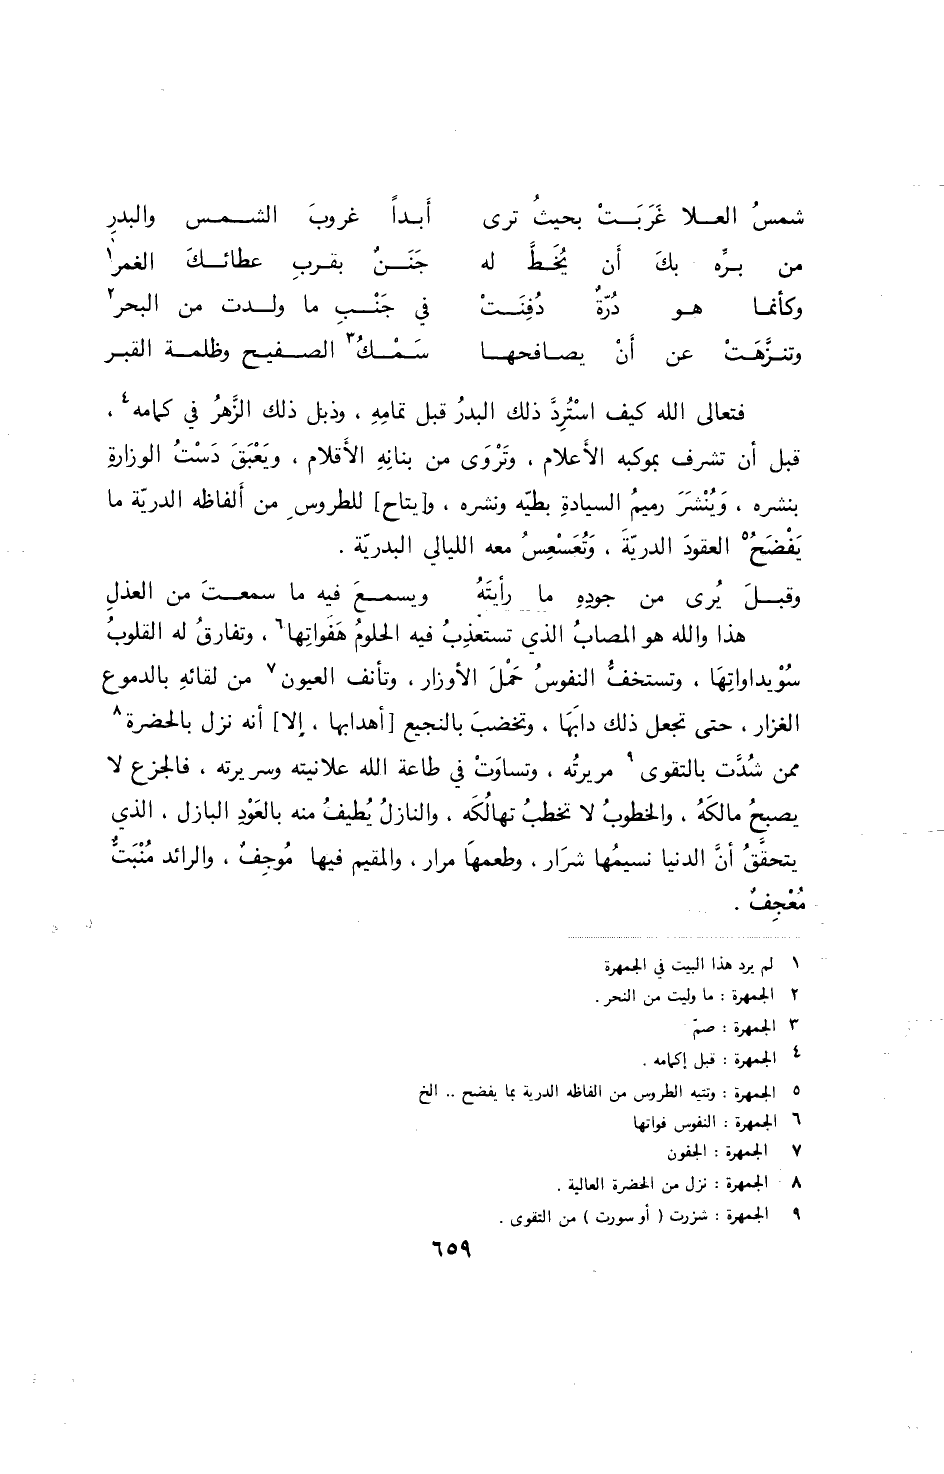 شمسُ العـلا غَرَبَـتْ بحيثُ ترى أبـداً غروبَ الشـمـس والبدرِ
من بـرِّه بكَ أن يُخَـطَّ له جَنَـنٌ بقربِ عطائـكَ الغمرِ١
وكأنما هـو دُرّةٌ دُفِنَـتْ في جَنْـبِ ما ولـدت من البحر٢
وتنـزَّهَـتْ عن أنْ يصافحهـا سَمْـكُ٣ الصـفيح وظلمة القبر
فتعالى الله كيف اسْتُرِدَّ ذلك البدرُ قبل تمامِهِ ، وذبل ذلك الزَّهرُ في كمامه٤ ،
قبل أن تشرف بموكبه الأعلام ، وتَرْوَى من بنانِهِ الأقلام ، ويَعْبَقَ دَسْتُ الوزارةِ
بنشره ، وَيُنْشَرَ رميمُ السيادةِ بطيّه ونشره ، و[يتاح] للطروس من ألفاظه الدريّة ما
يَفْضَحُ٥ العقودَ الدريّةَ ، وَتُعَسْعِسُ معه الليالي البدريّة .
وقبـلَ يُرى من جودِهِ ما رأيتَهُ ويسمـعَ فيه ما سمعـتَ من العذلِ
هذا والله هو المصابُ الذي تستعذِبُ فيه الحلومُ هَفَواتِها٦ ، وتفارقُ له القلوبُ
سُوْيداواتِهَا ، وتستخفُّ النفوسُ حَمْلَ الأوزار ، وتأنف العيون٧ من لقائهِ بالدموع
الغزار ، حتى تجعل ذلك دابَها ، وتخضبَ بالنجيع [أهدابها ، إلا] أنه نزل بالحضرة٨
ممن شُدَّت بالتقوى٩ مريرتُه ، وتساوَتْ في طاعة الله علانيته وسريرته ، فالجزع لا
يصبحُ مالكَهُ ، والخطوبُ لا تخطبُ تهالُكَه ، والنازلُ يُطيفُ منه بالعَوْدِ البازل ، الذي
يتحقَّقُ أنَّ الدنيا نسيمُها شرَار ، وطعمهَا مرار ، والمقيم فيها مُوجِفٌ ، والرائد مُنْبَتٌّ
مُعْجِفٌ .
١ لم يرد هذا البيت في الجمهرة
٢ الجمهرة : ما وليت من النحر .
٣ الجمهرة : صمّ
٤ الجمهرة : قبل إكمامه .
٥ الجمهرة : وتتيه الطروس من الفاظه الدرية بما يفضح .. الخ
٦ الجمهرة : النفوس فواتها
٧ الجمهرة : الجفون
٨ الجمهرة : نزل من الحضرة العالية .
٩ الجمهرة : شزرت ( أو سورت ) من التقوى .
٦٥٩